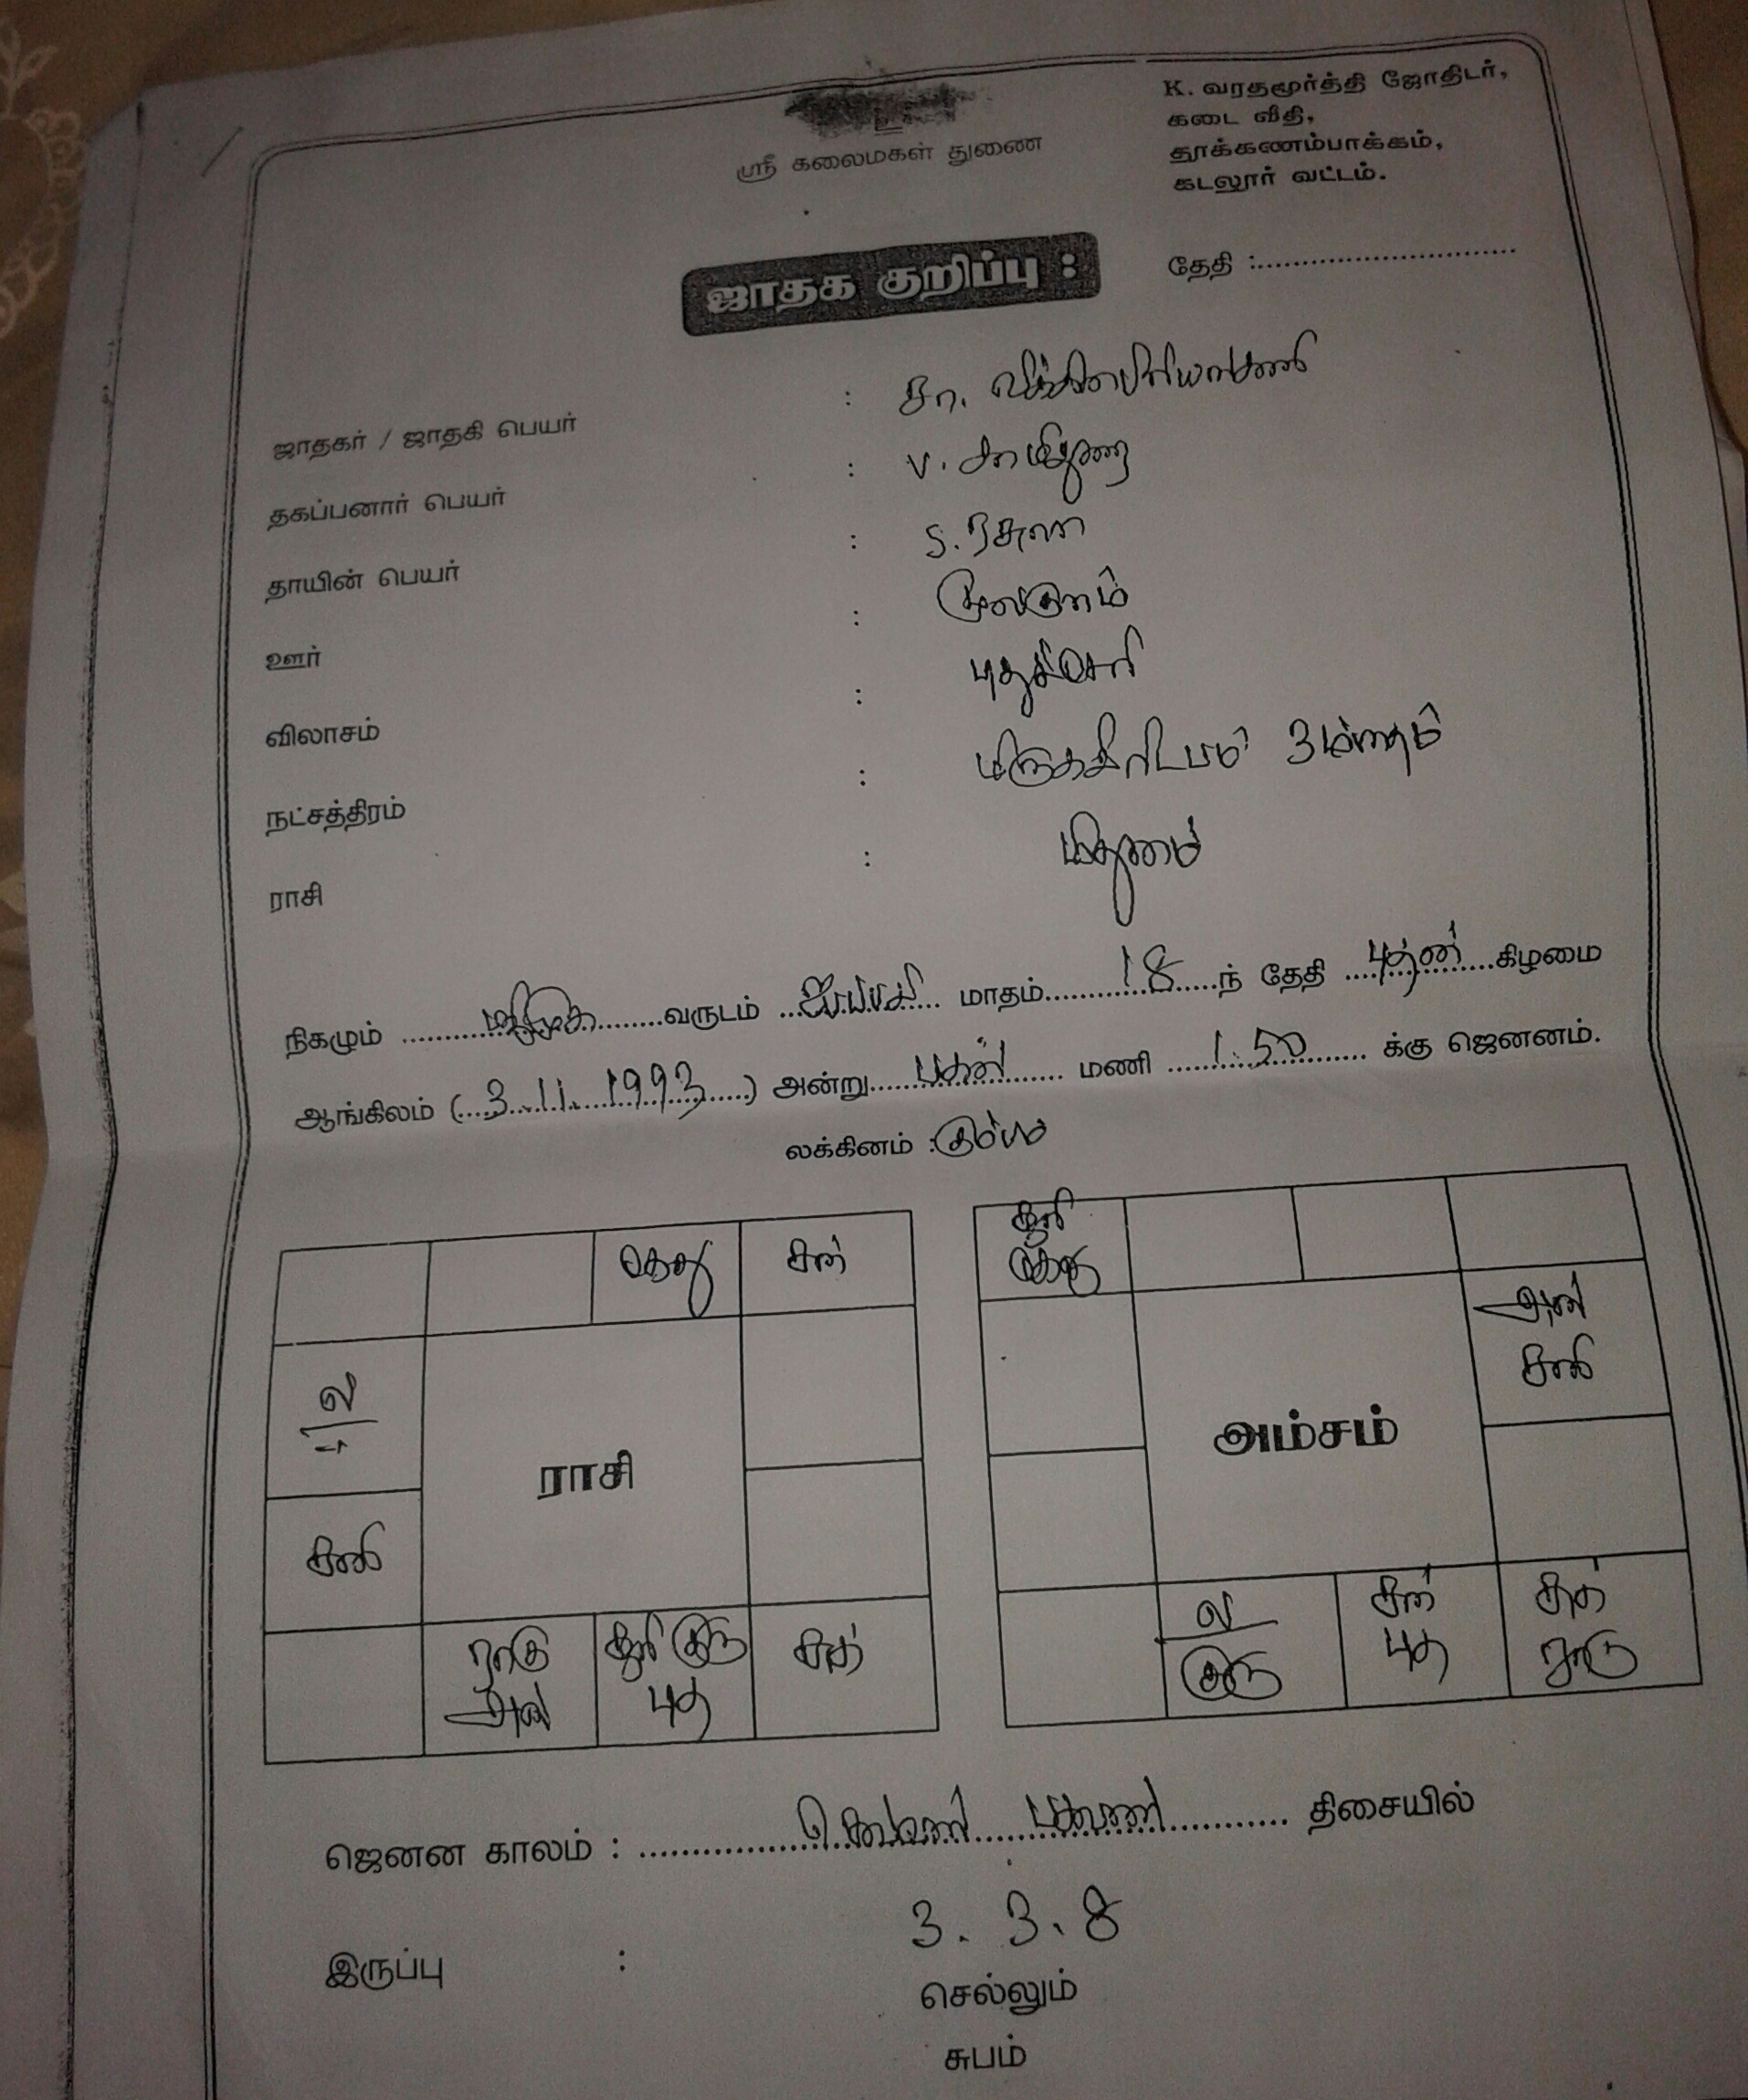 உ
ஸ்ரீ கலைமகள் துணை
K. வரதமூர்த்தி ஜோதிடர்,
கடை வீதி,
தூக்கணம்பாக்கம்,
கடலூர் வட்டம்.
ஜாதக குறிப்பு :
தேதி :..............................
ஜாதகர் / ஜாதகி பெயர் : சா.
தகப்பனார் பெயர் : V. சாமிதுரை
தாயின் பெயர் : S.
ஊர் : மூலகுளம்
விலாசம் : புதுச்சேரி
நட்சத்திரம் : மிருகசீரிடம் 3ம்
ராசி : மிதுனம்
நிகழும் ..................வருடம் ...ஐப்பசி... மாதம்.......18......ந் தேதி ....புதன்....கிழமை
ஆங்கிலம் (...3...11...1993.....) அன்று.....பகல்...... மணி ....1.50...... க்கு ஜெனனம்.
லக்கினம் : கும்பம்
கேது சந்
ல
சனி
ராசி
ராகு சூரி குரு சுக்
புத
சூரி
கேது
சனி
அம்சம்
ல சந் சுக்
குரு புத ராகு
ஜெனன காலம் : ................செவ்வாய்.................. திசையில்
இருப்பு : 3. 3. 8
செல்லும்
சுபம்